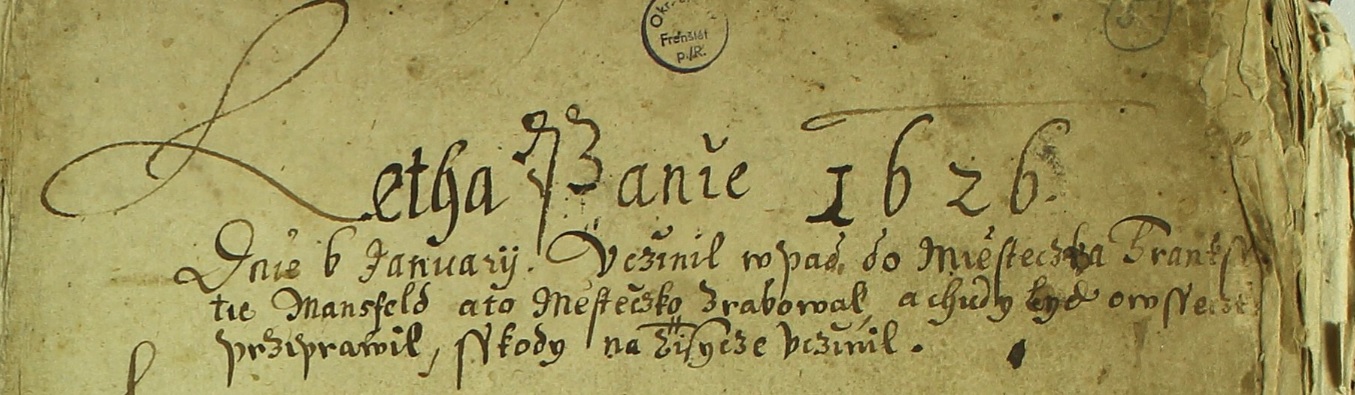 Frenštát
p./R.
Letha Panie 1626.
Dnie 6 January. Vczinil wpad do Miesteczka
tie Mansfeld a to Mesteczko Zrabowal, a chudy lyd o wsseczko
prziprawil, sskody na Tisycze Vczinil.